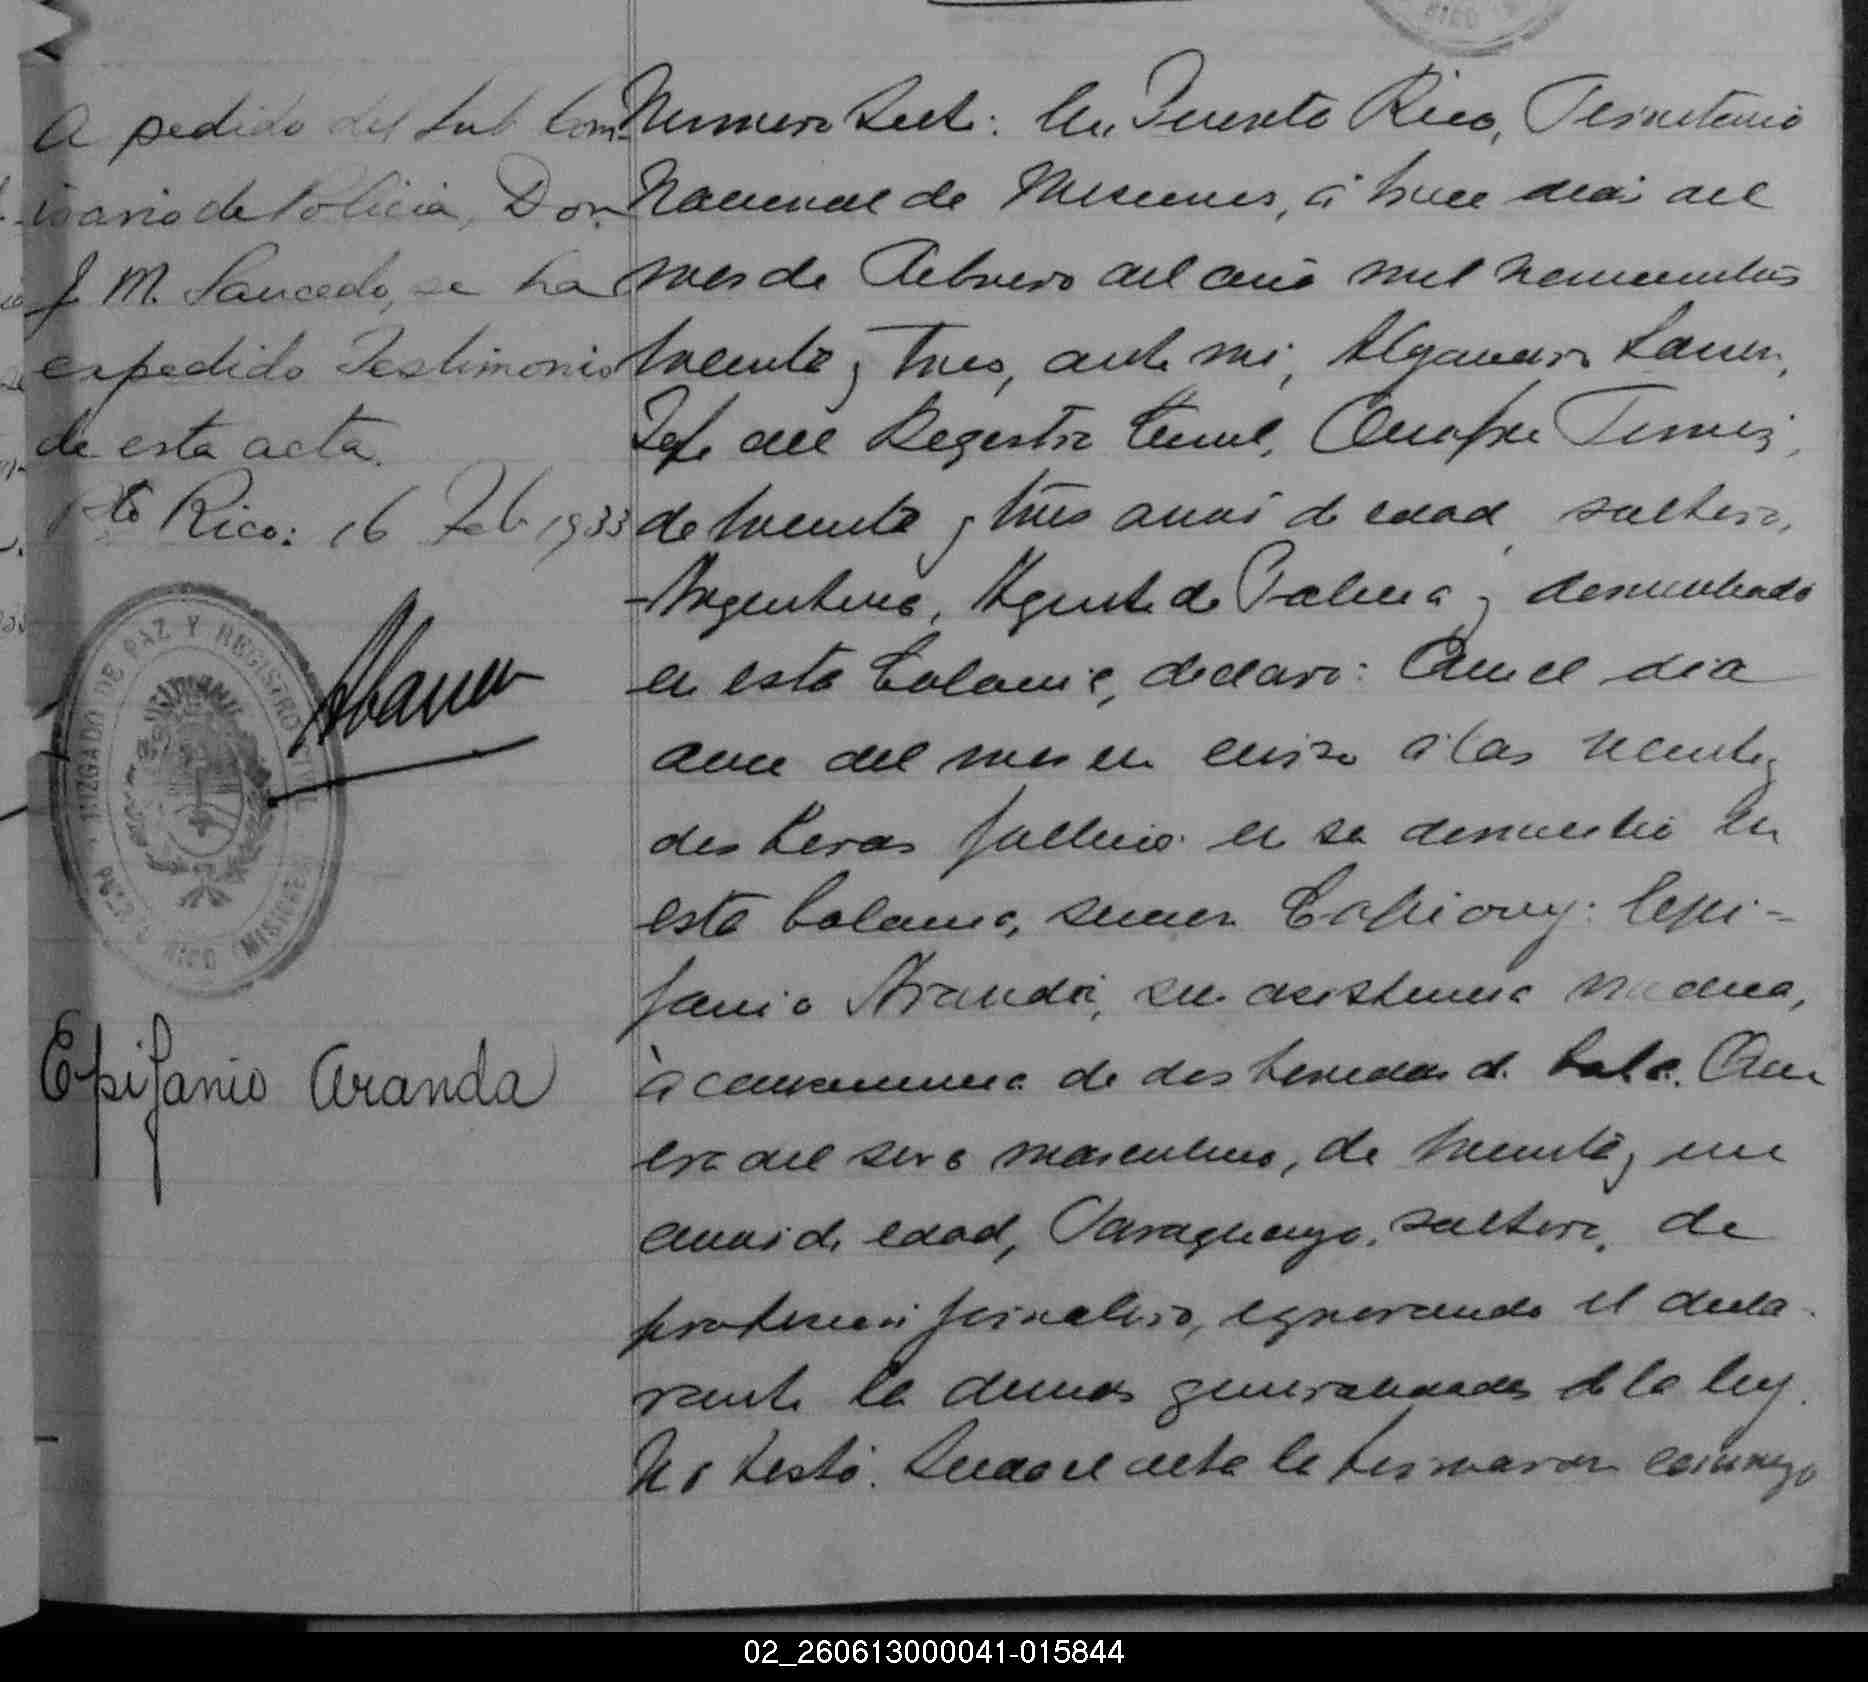 A pedido del Sub Com-
isario de Policia, Don
J. M. Saucedo, se ha
expedido Testimonio
de esta acta.
Pto Rico: 16 Feb 1933
JUZGADO DE PAZ Y REGISTRO CIVIL
PUERTO RICO (MISIONES)
Epifanio Aranda
Numero Siete: En Puerto Rico, Territorio
Nacional de Misiones, á trece dias del
mes de Febrero del año mil novecientos
treinta y tres, ante mi, Alejandro
Jefe del Registro Civil,
de treinta y tres años de edad, soltero,
Argentino, Agente de Policia y domiciliado
en esta Colonia, declaró: Que el dia
once del mes en curso á las veinte y
dos horas falleció en su domicilio en
esta Colonia, Capiovy: Epi-
fanio Aranda, sin asistencia medica,
á consecuencia de dos heridas de bala. Que
era del sexo masculino, de treinta y un
años de edad, Paraguayo, soltero, de
profesion jornalero, ignorando el decla-
rante las demas generalidades de la ley.
No testó. Leida el acta la firmaron conmigo
02_260613000041-015844